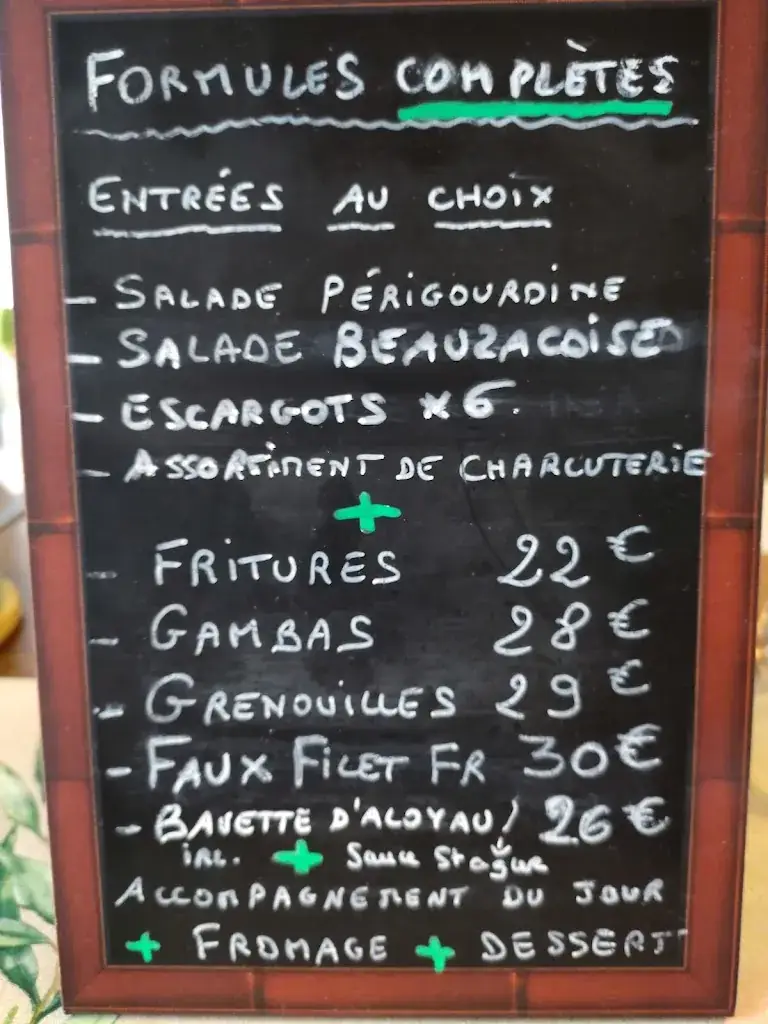 FORMULES COMPLÈTES
ENTRÉES AU CHOIX
- SALADE PÉRIGOURDINE
- SALADE BEAUZACOISE
- ESCARGOTS x6.
- ASSORTIMENT DE CHARCUTERIE
+
- FRITURES 22 €
- GAMBAS 28 €
- GRENOUILLES 29 €
- FAUX FILET FR 30 €
- BAVETTE D'ALOYAU / 26 €
IRL. + Sauce
ACCOMPAGNEMENT DU JOUR
+ FROMAGE + DESSERT